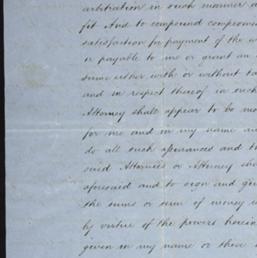 arbitration in such manner a
fit And to compound compromi
satisfaction for payment of the w
or payable to me or grant an
same either with or without ta
and in respect thereof in such
Attorney shall appear to be
for me and in my name
do all such
said Attornies or Attorney sha
aforesaid and to sign and give
the sums or sum of money
by virtue of the powers herein
given in my name or these